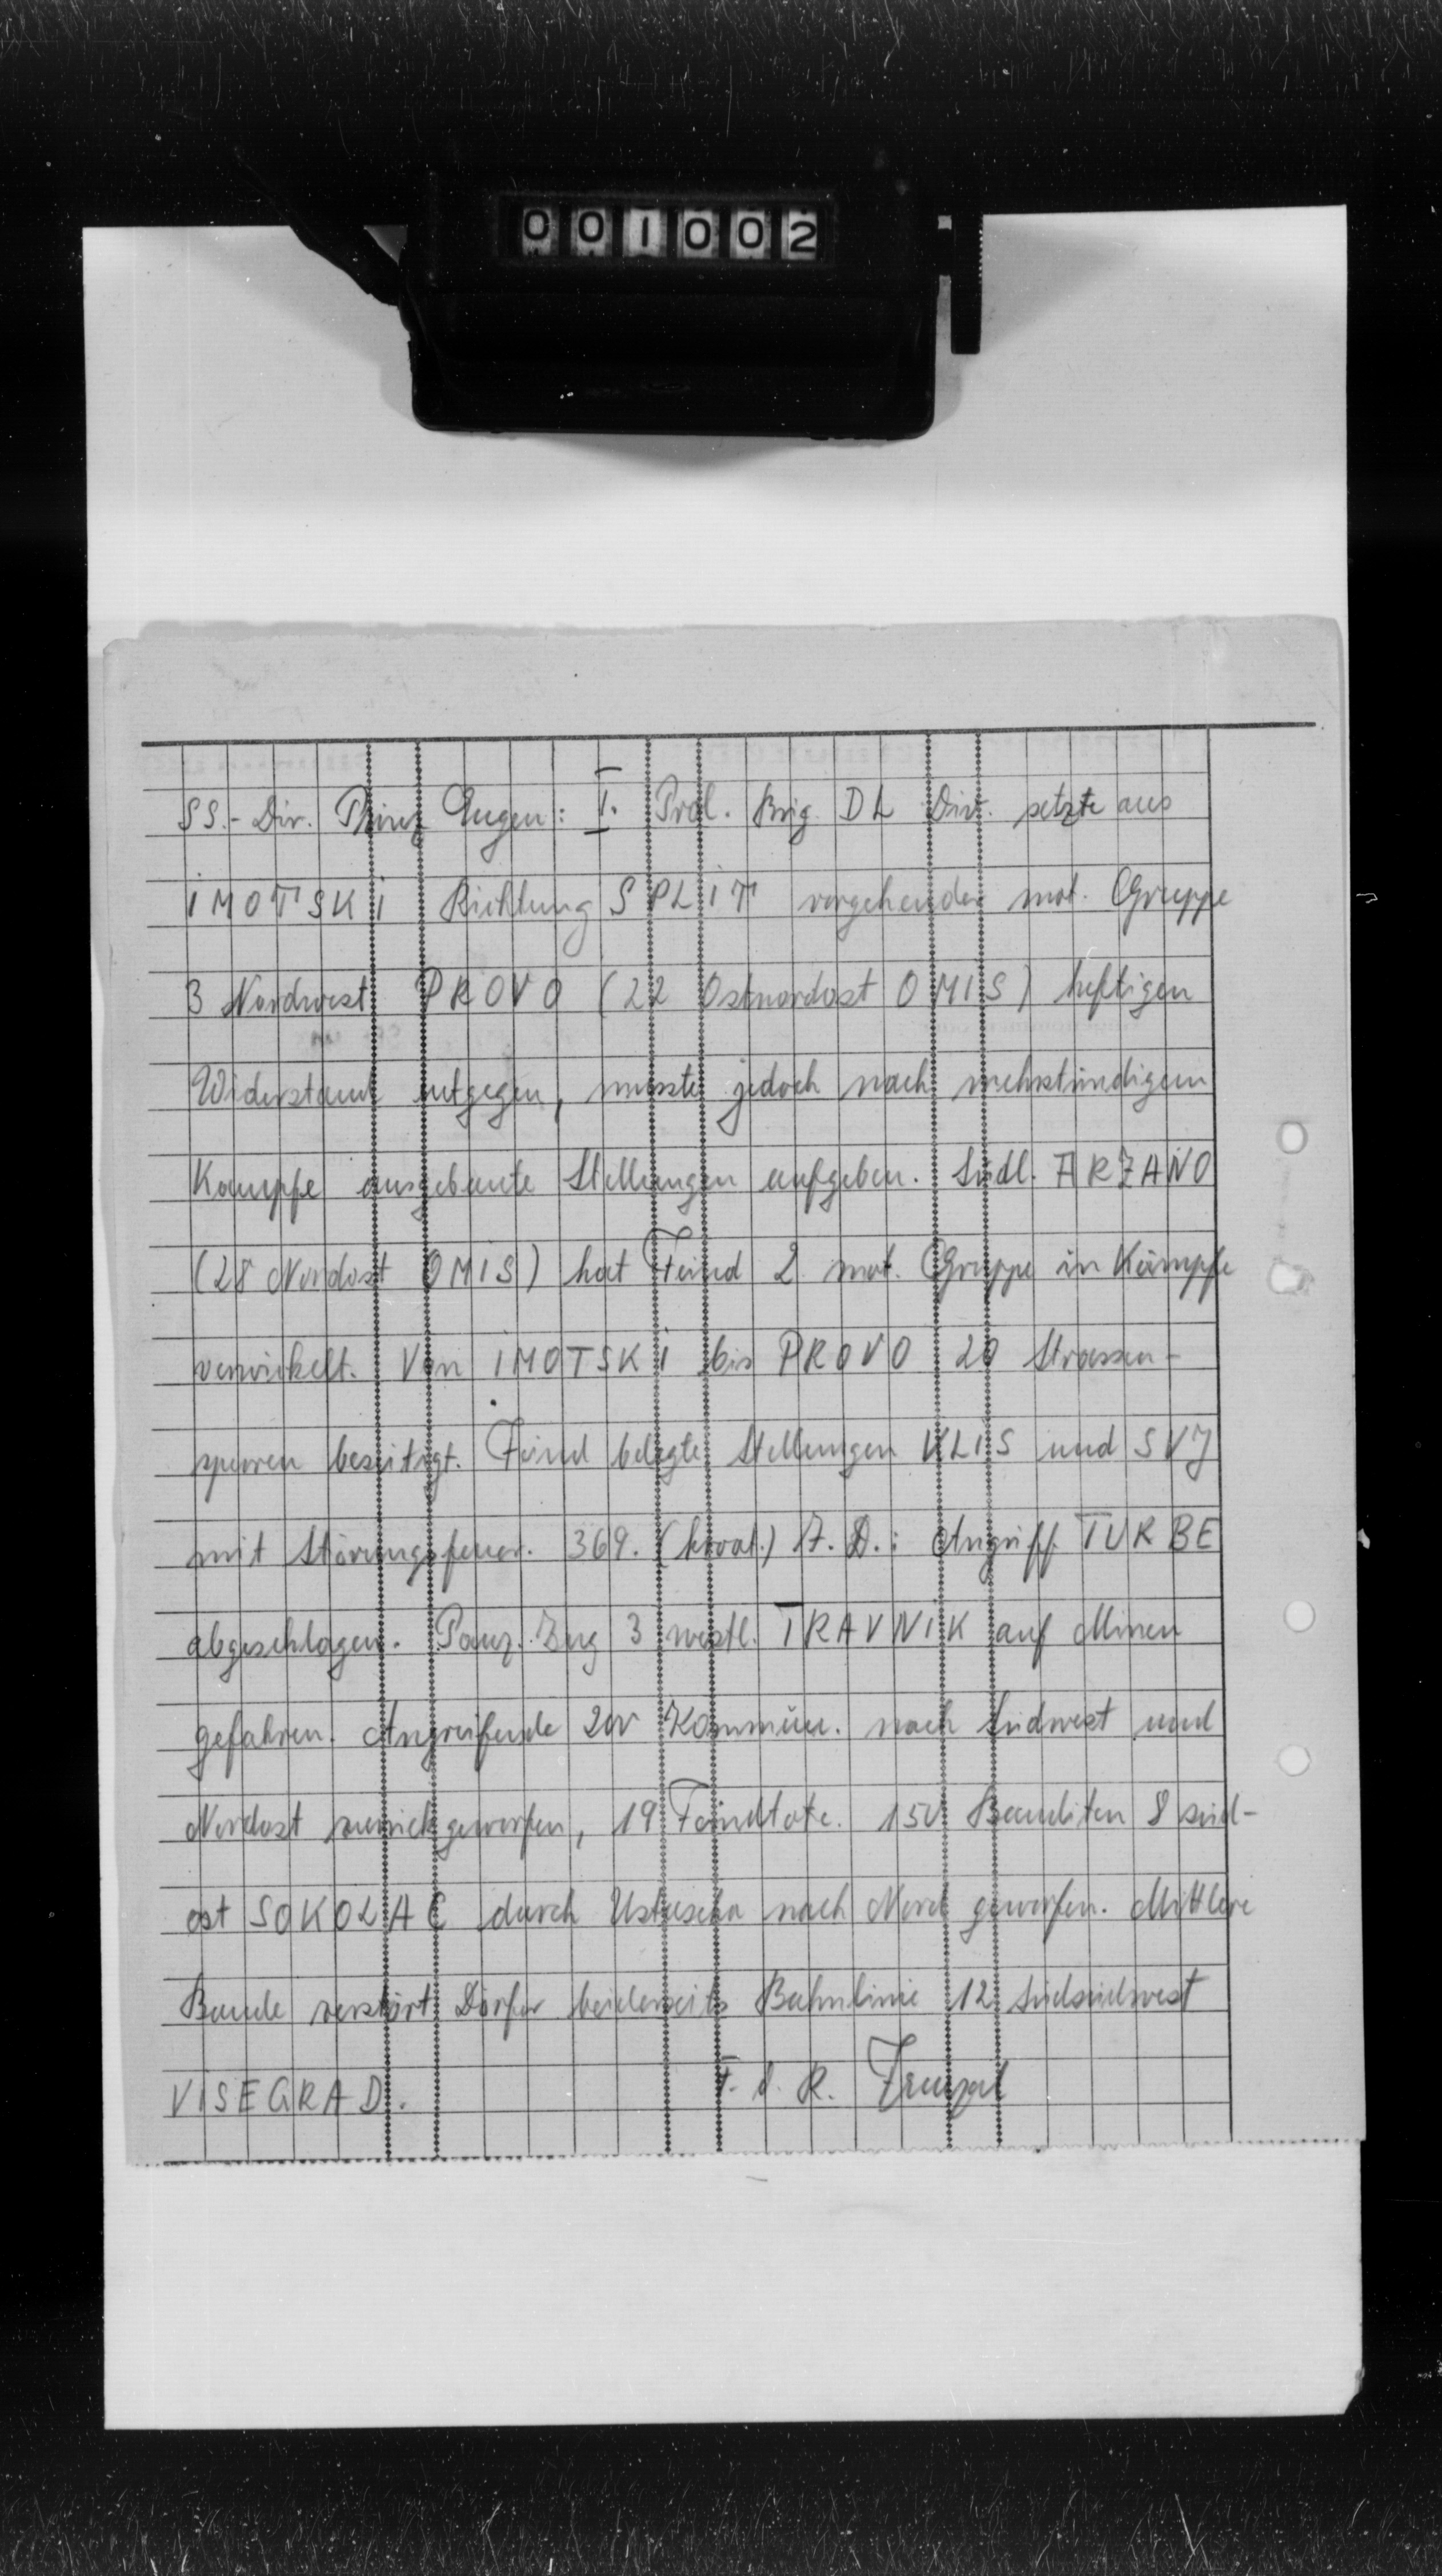 001002
SS.-Div. Prinz Eugen: I. Prol. Brig. DL Div. setzte aus
IMOTSKI Richtung SPLIT vorgehender mot. Gruppe
3 Nordwest PROVO (22 Ostnordost OMIS) heftigen
Widerstand entgegen, musste jedoch nach mehrstündigem
Kampfe ausgebaute Stellungen aufgeben. Südl. ARZANO
(28 Nordost OMIS) hat Feind 2. mot. Gruppe in Kämpfe
verwickelt. Von IMOTSKI bis PROVO 20 Strassen-
sperren beseitigt. Feind belegte Stellungen KLIS und SVJ
mit Störungsfeuer. 369. (kroat.) J.D.: Angriff TURBE
abgeschlagen. Panz. Zug 3 westl. TRAVNIK auf Minen
gefahren. Angreifende 200 Kommun. nach Südwest und
Nordost zurückgeworfen, 19 Feindtote. 150 Banditen 8 süd-
ost SOKOLAC durch Ustascha nach Nord geworfen. Mittlere
Bande zerstört Dörfer beiderseits Bahnlinie 12 südsüdwest
VISEGRAD. F. d. R.